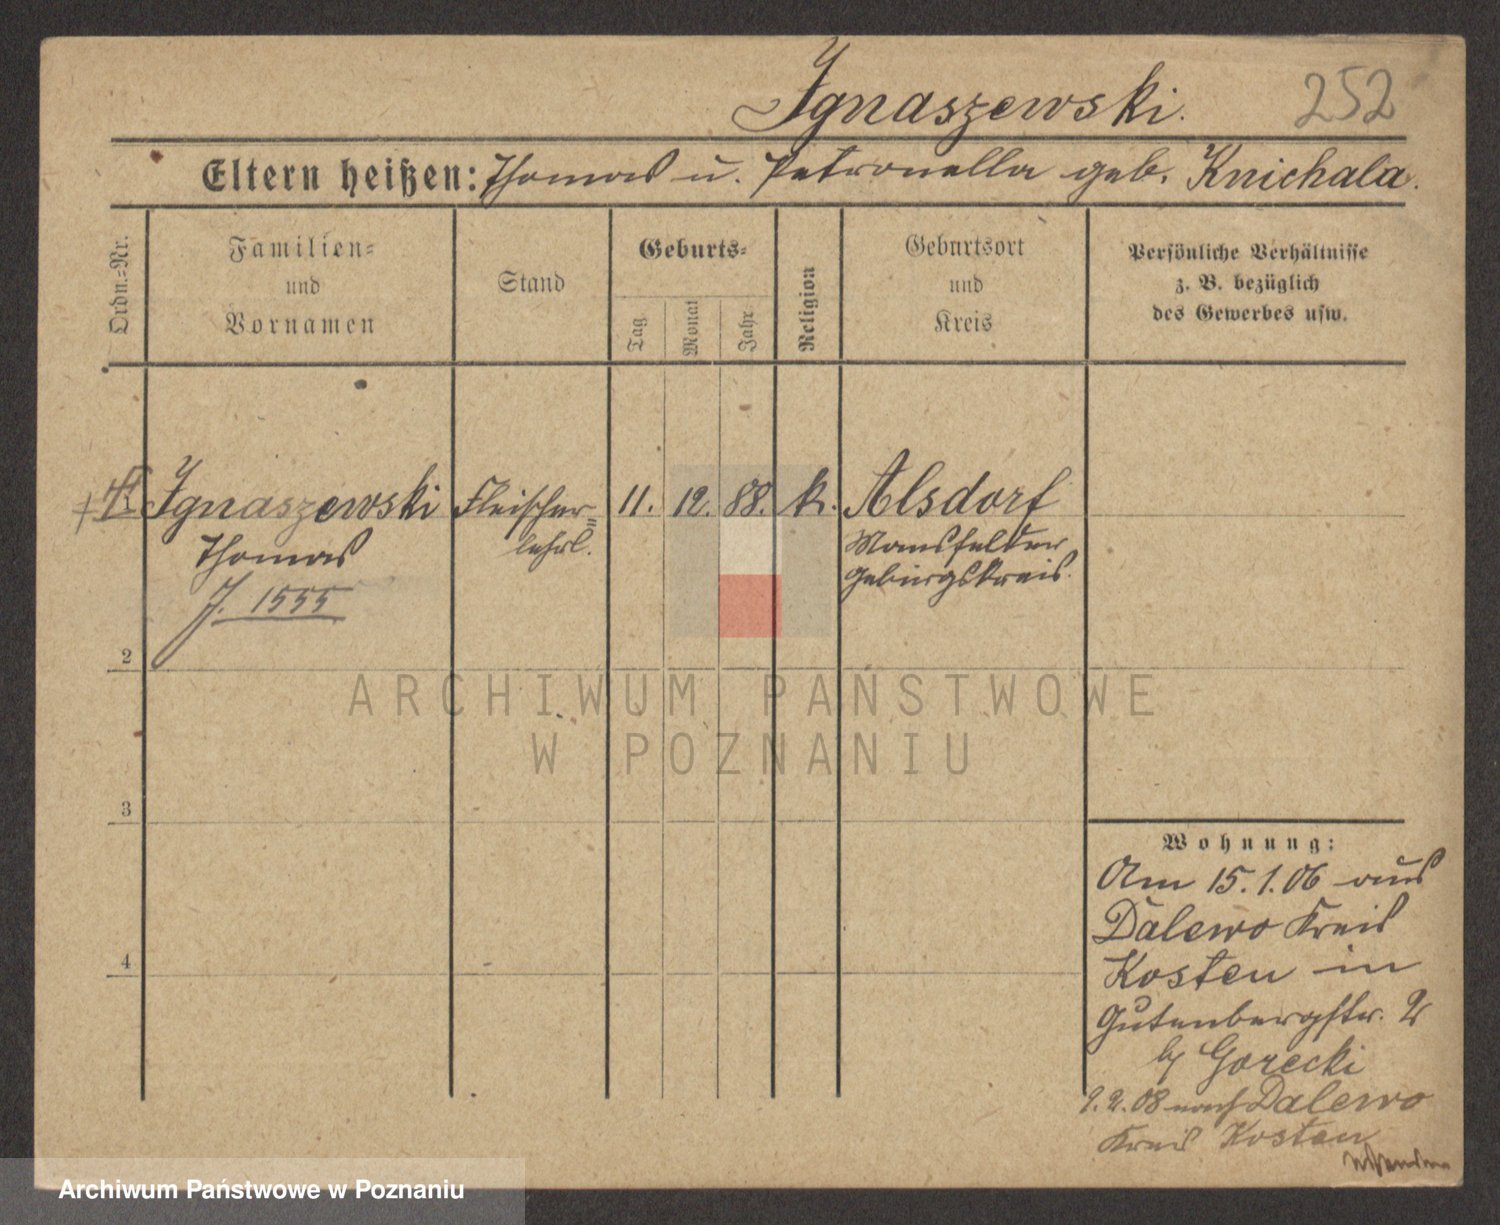 Ignaszewski.
252
Eltern heißen: Thomas u. Petronella geb. Knichala.
Ordn.-Nr.
Familien-
und
Vornamen
Stand
Geburts-
Tag
Monat
Jahr
Religion
Geburtsort
und
Kreis
Persönliche Verhältnisse
z. B. bezüglich
des Gewerbes usw.
Ignaszewski Fleischer- 11. 12. 88. k. Alsdorf
Thomas lehrl. Mansfelder
J. 1555 Gebirgskreis.
2
ARCHIWUM PAŃSTWOWE
W POZNANIU
3
Wohnung:
Am 15.1.06 aus
Dalewo Kreis
4
Kosten in
Gutenbergstr. 2
b/ Gorecki
1.2.08 nach Dalewo
Kreis Kosten
Archiwum Państwowe w Poznaniu